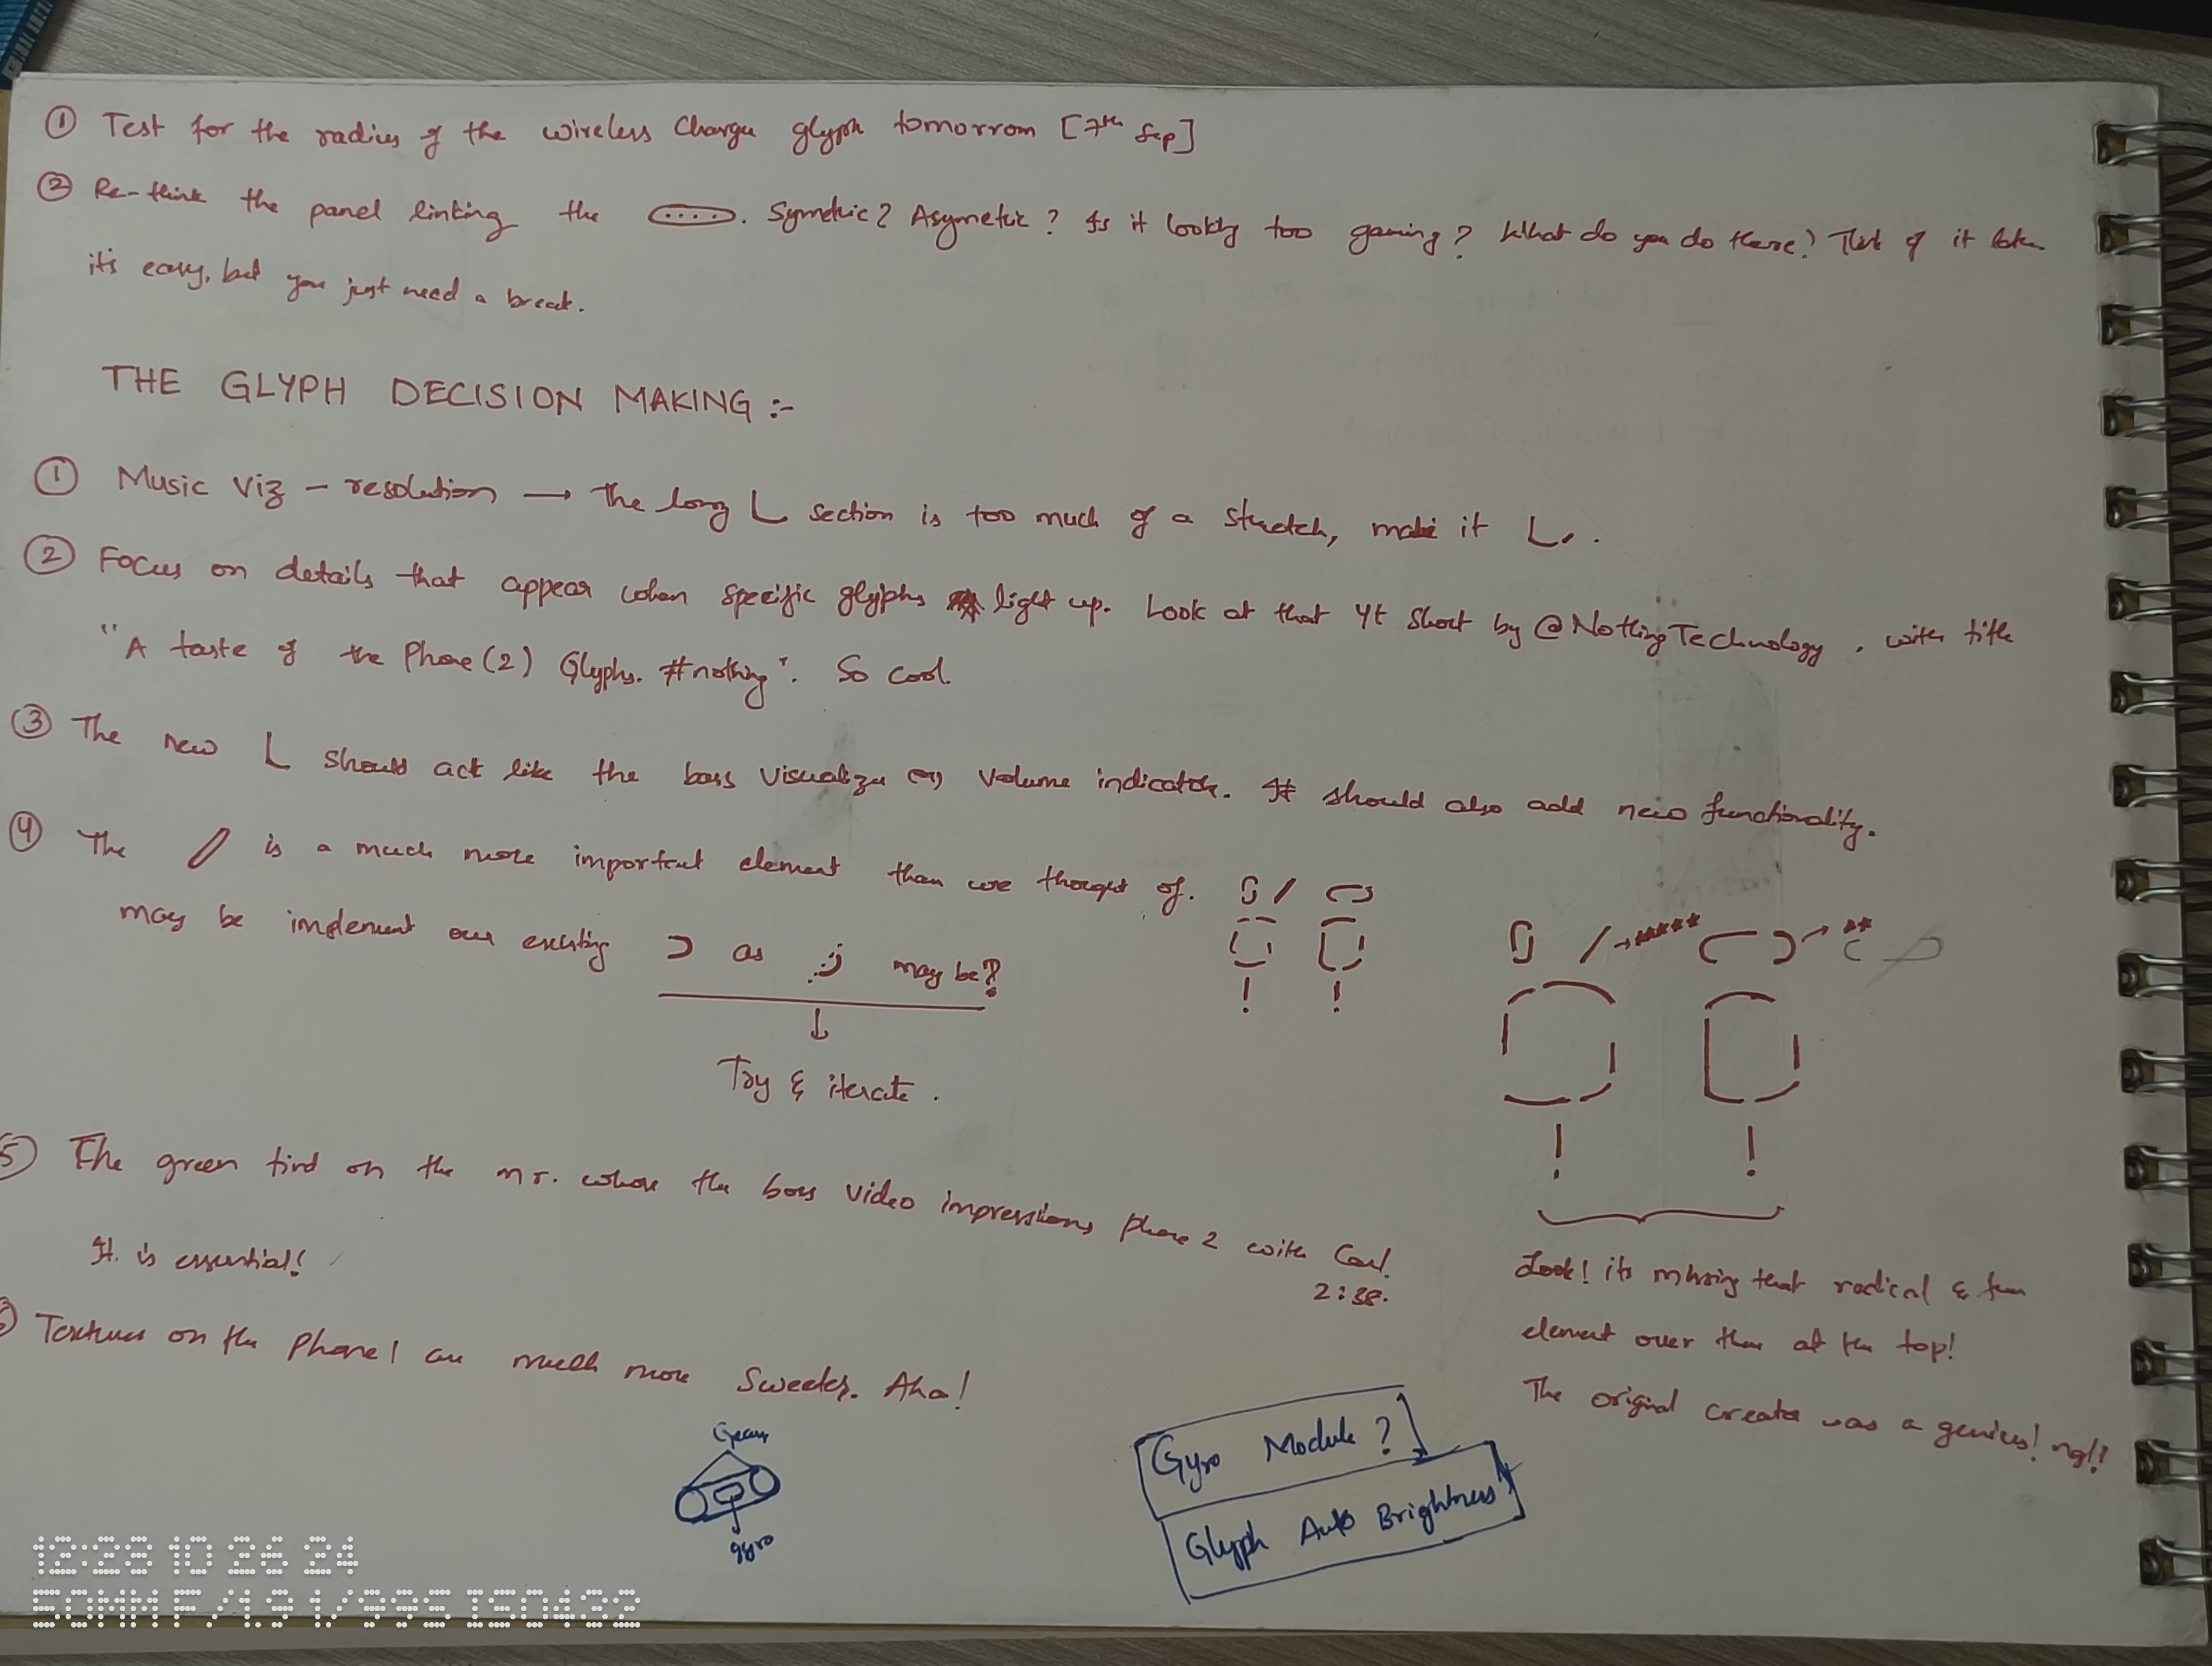 ① Test for the radius of the wireless Charger glyph tomorrow [7th Sep]
② Re-think the panel linking the . Symetric? Asymetric? Is it looking too gaming? What do you do there? it
it's easy, but you just need a break.
THE GLYPH DECISION MAKING :-
① Music Viz - resolution → the long L section is too much of a stretch, make it L.
② Focus on details that appear when specific glyphs light up. Look at that Yt Short by @NothingTechnology, with title
"A taste of the Phone (2) Glyphs. #nothing". So cool
③ The new L should act like the bass visualizer volume indicator. It should also add new functionality.
④ The / is a much more important element than we thought of.
may be implement our existing as may be?
Try & iterate.
⑤ The green on the mr. whose the boss video impressions phone 2 with Carl.
2:38.
It is essential!
Textures on the Phone 1 are much more Sweeter. Aha!
Look! its missing that radical & fun
element over there at the top!
The original creator was a genius! ngl!
Gears
gyro
Gyro Module?
Glyph Auto Brightness
12:28 10 26 24
50MM F/1.9 1/99S ISO432